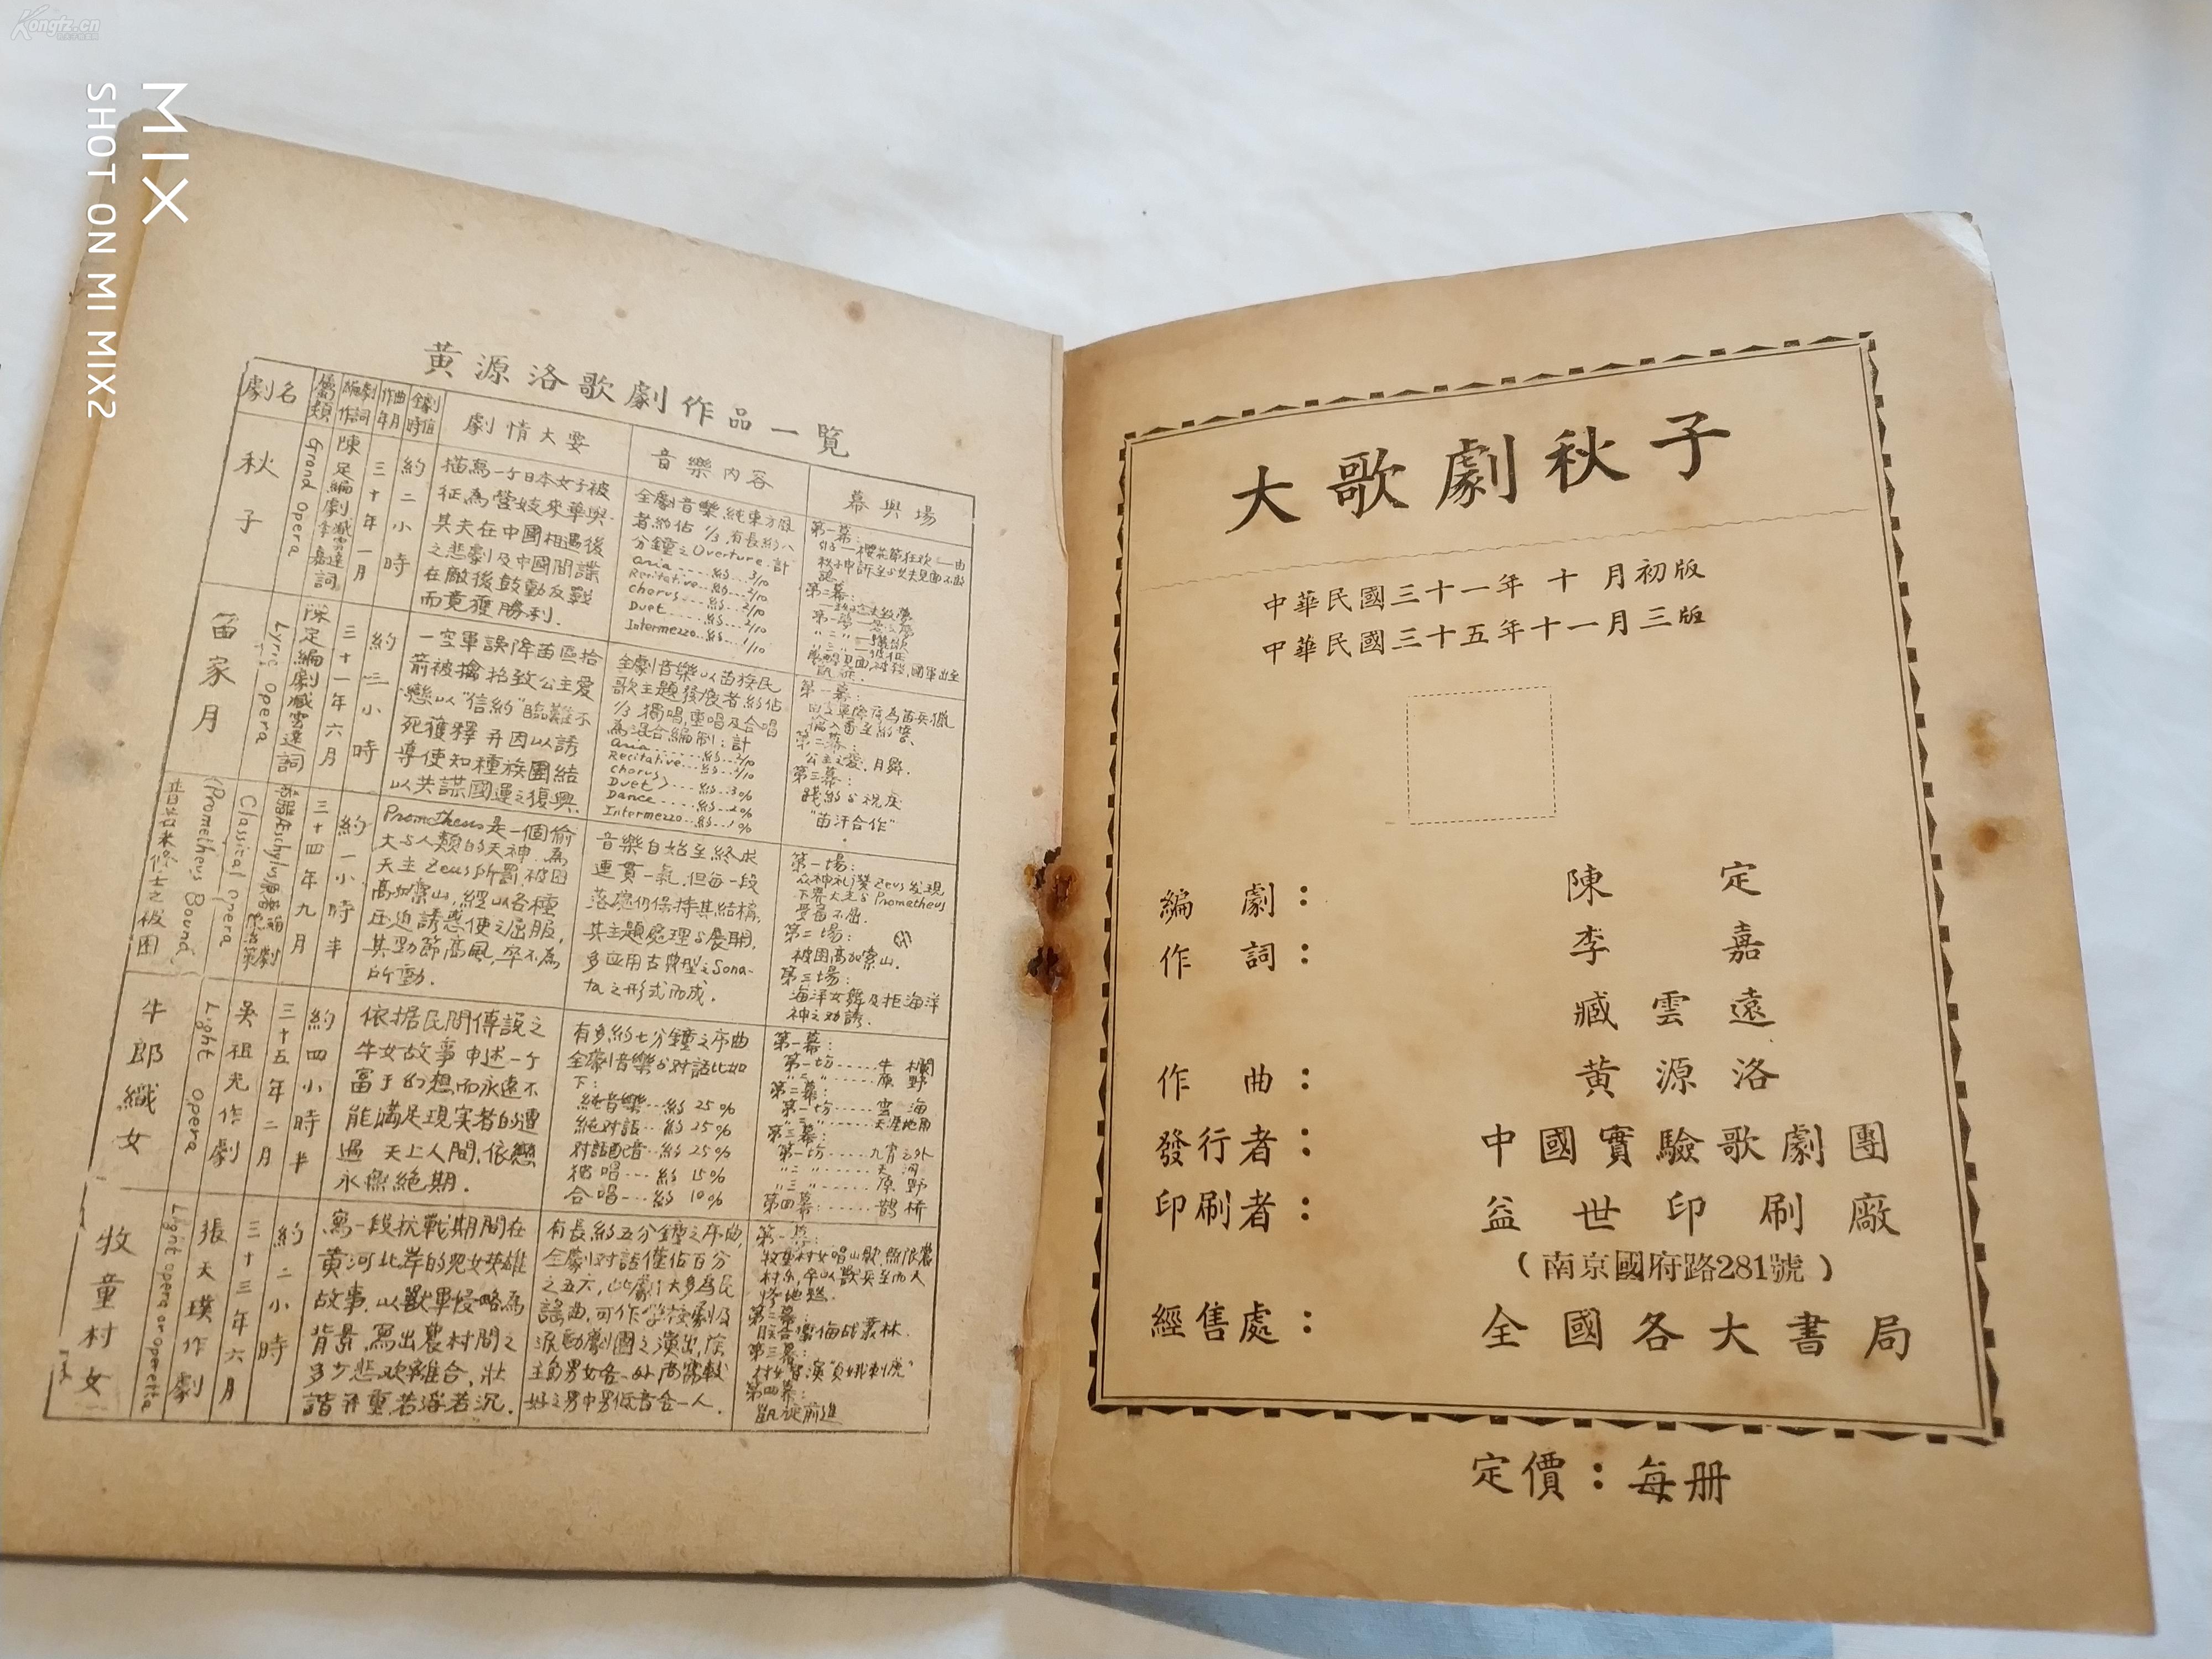 Kongfz.cn
MIX
SHOT ON MI MIX2
黃源洛歌劇作品一覽
劇名
屬類
編劇作詞
作曲年月
全劇時值
劇情大要
音樂內容
幕與場
秋子
Grand Opera
陳定編劇臧雲遠李嘉詞
三十年一月
約二小時
描寫一个日本女子被
征為營妓來華與
其夫在中國相遇後
之悲劇及中國間諜
在敵後鼓動反戰
而竟獲勝利.
全劇音樂純東方風
者約佔 1/3,有長約八
分鐘之Overture.計
Aria......約...3/10
Recitative...約...2/10
Chorus....約...2/10
Duet.....約...2/10
Intermezzo...約...1/10
第一幕:
第二幕:
苗家月
Lyric Opera
陳定編劇臧雲遠詞
三十一年六月
約三小時
一空軍誤降苗區拾
箭被擒招致公主愛
戀以"信約"臨難不
死獲釋并因以誘
導使知種族團結
以共謀國運之復興.
全劇音樂以苗族民
歌主題發展者約佔
1/3 獨唱,重唱及合唱
為混合編制:計
Aria
Recitative
Chorus
Duet ....約...30%
Dance
Intermezzo
第一幕:
第二幕:
公主之愛.月舞.
第三幕:
踐約与祝度
"苗汗合作"
(Prometheus Bound)
Classical Opera
三十四年九月
約一小時半
Prometheus是一個偷
火与人類的天神.為
天主Zeus所罰,被囚
高加索山,經以各種
壓迫誘惑使之屈服,
其勁節高風,卒不為
所動.
音樂自始至終求
連貫一氣.但每一段
落應仍保持其結構,
其主題處理与展開,
多应用古典型之Sona-
ta之形式而成.
第一場:
众神礼讚Zeus发現
下界火主与Prometheus
受辱不屈.
第二場:
被囚高加索山.
第三場:
海洋女舞及拒海洋
神之劝誘.
牛郎織女
Light Opera
吳祖光作劇
三十五年二月
約四小時半
依据民間傳說之
牛女故事申述一个
富于幻想,而永遠不
能滿足現实者的遭
遇 天上人間,依戀
永無絕期.
有多約七分鐘之序曲
全劇音樂与对話比如
下:
純音樂...約 25%
純对話...約 25%
对話配音...約 25%
独唱...約 15%
合唱...約 10%
第一幕:
第一場......牛欄
〃二〃......原野
第二幕:
第一場.....雲海
第三幕:
第一場....九宵之外
〃二〃......天河
〃三〃......原野
第四幕:......鵲桥
牧童村女
Light opera or operetta
張天璞作劇
三十三年六月
約二小時
寫一段抗戰期間在
黃河北岸的兒女英雄
故事.以獸軍侵略為
背景,寫出農村間之
多少悲欢離合,壯
諧并重若浮若沉.
有長約五分鐘之序曲,
全劇对話僅佔百分
之五六,此劇大多為民
謠曲,可作学校劇及
流動劇團之演出,除
主角男女各一外尚需較
好之男中男低音各一人.
第一幕:
第二幕:
第三幕:
第四幕:
凱旋前進
大歌劇秋子
中華民國三十一年 十 月初版
中華民國三十五年十一月三版
編劇: 陳定
作詞: 李嘉
臧雲遠
作曲: 黃源洛
發行者: 中國實驗歌劇團
印刷者: 益世印刷廠
(南京國府路281號)
經售處: 全國各大書局
定價:每册